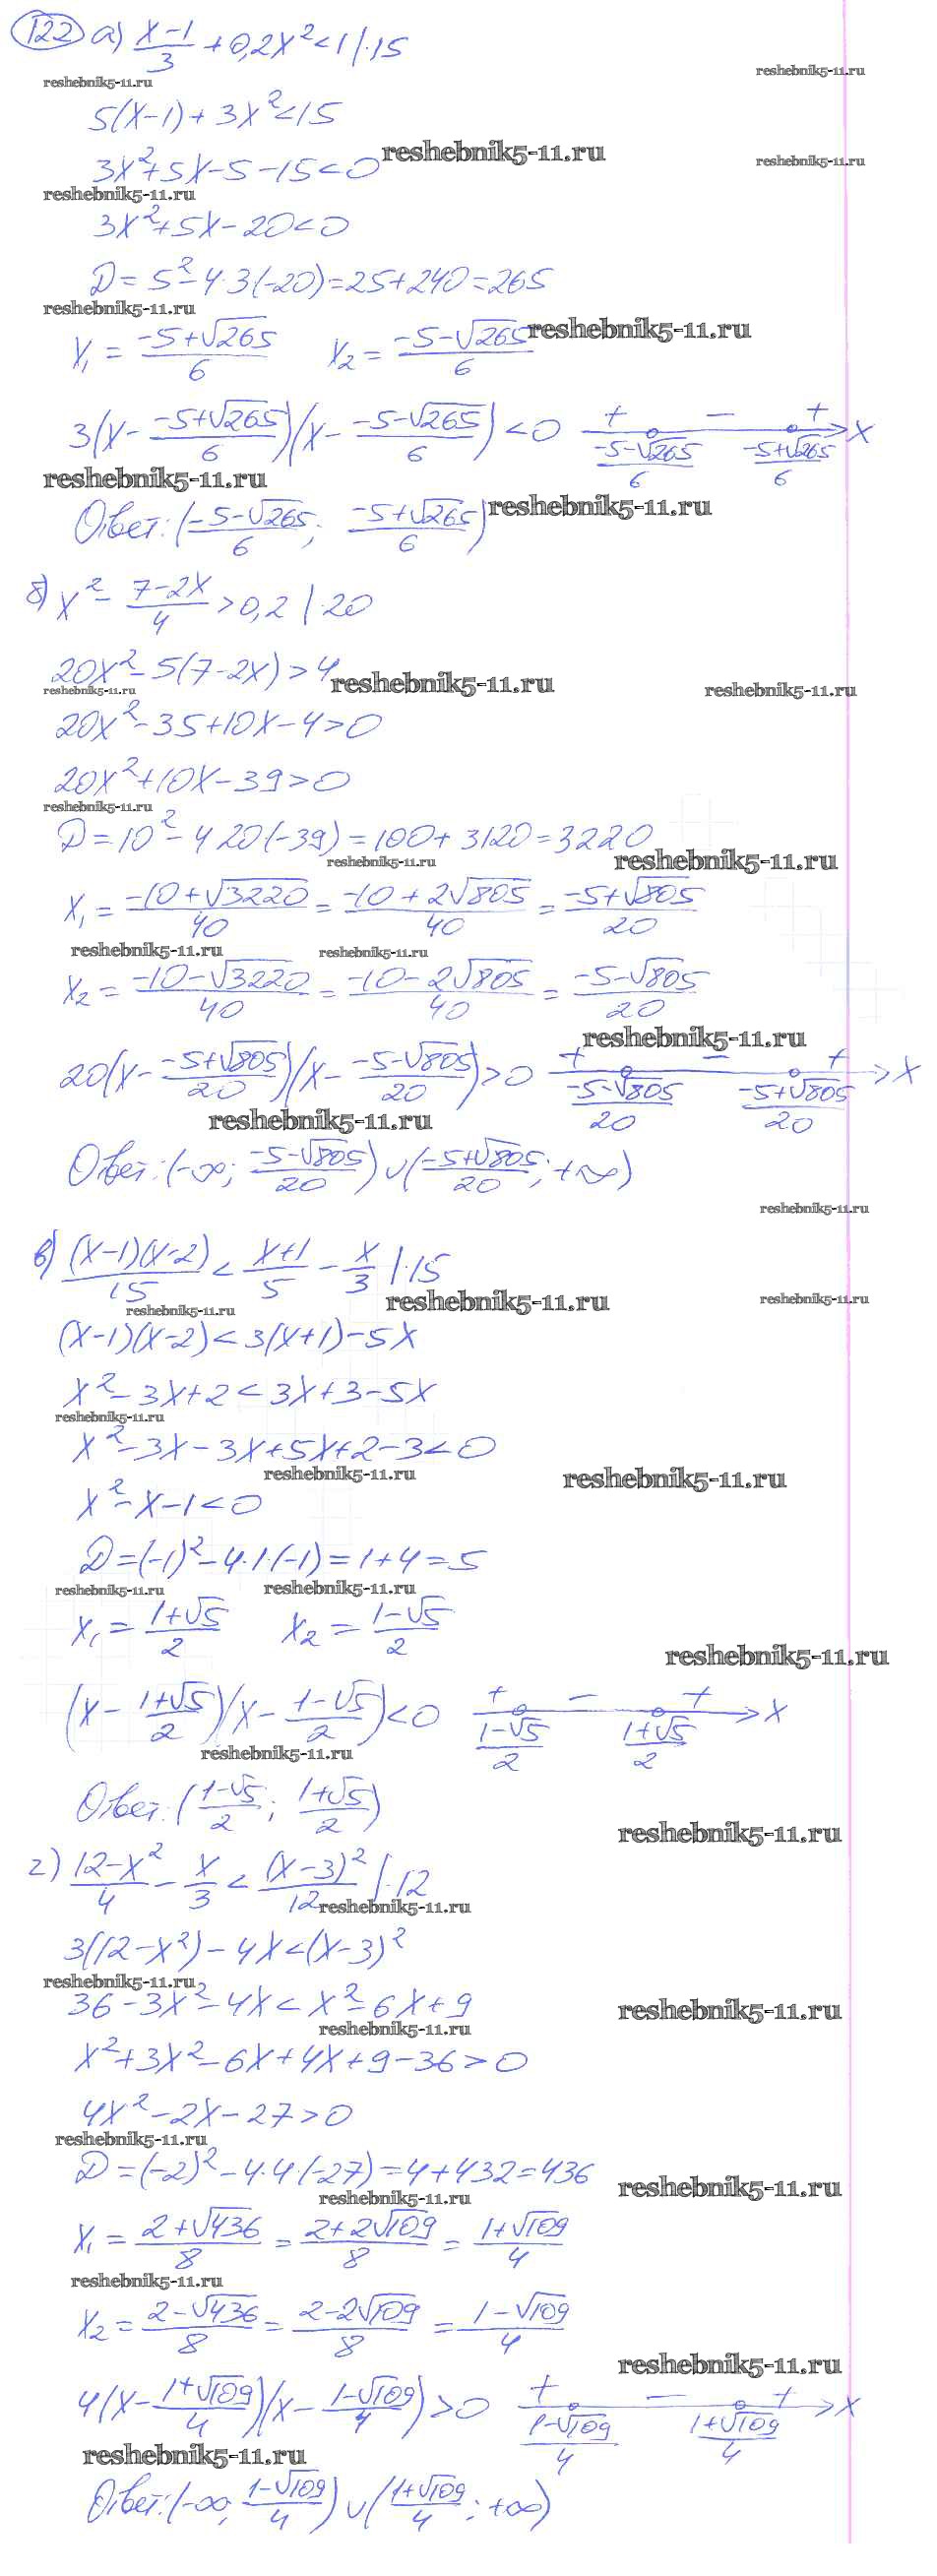 122 а) (x-1)/3 + 0,2x² < 1 |·15
reshebnik5-11.ru reshebnik5-11.ru
5(x-1) + 3x² < 15
reshebnik5-11.ru reshebnik5-11.ru
3x² + 5x - 5 - 15 < 0
reshebnik5-11.ru
3x² + 5x - 20 < 0
D = 5² - 4·3(-20) = 25 + 240 = 265
reshebnik5-11.ru
x₁ = (-5+√265)/6 x₂ = (-5-√265)/6 reshebnik5-11.ru
3(x - (-5+√265)/6)(x - (-5-√265)/6) < 0 + - + x
(-5-√265)/6 (-5+√265)/6
reshebnik5-11.ru
Ответ: ((-5-√265)/6; (-5+√265)/6) reshebnik5-11.ru
б) x² - (7-2x)/4 > 0,2 |·20
20x² - 5(7-2x) > 4 reshebnik5-11.ru
reshebnik5-11.ru reshebnik5-11.ru
20x² - 35 + 10x - 4 > 0
20x² + 10x - 39 > 0
reshebnik5-11.ru
D = 10² - 4 20(-39) = 100 + 3120 = 3220
reshebnik5-11.ru reshebnik5-11.ru
x₁ = (-10+√3220)/40 = (-10+2√805)/40 = (-5+√805)/20
reshebnik5-11.ru reshebnik5-11.ru
x₂ = (-10-√3220)/40 = (-10-2√805)/40 = (-5-√805)/20
reshebnik5-11.ru
20(x - (-5+√805)/20)(x - (-5-√805)/20) > 0 + - + x
(-5-√805)/20 (-5+√805)/20
reshebnik5-11.ru
Ответ: (-∞; (-5-√805)/20) ∪ ((-5+√805)/20; +∞)
reshebnik5-11.ru
в) (x-1)(x-2)/15 < (x+1)/5 - x/3 |·15
reshebnik5-11.ru reshebnik5-11.ru reshebnik5-11.ru
(x-1)(x-2) < 3(x+1) - 5x
x² - 3x + 2 < 3x + 3 - 5x
reshebnik5-11.ru
x² - 3x - 3x + 5x + 2 - 3 < 0
reshebnik5-11.ru reshebnik5-11.ru
x² - x - 1 < 0
D = (-1)² - 4·1·(-1) = 1 + 4 = 5
reshebnik5-11.ru reshebnik5-11.ru
x₁ = (1+√5)/2 x₂ = (1-√5)/2
reshebnik5-11.ru
(x - (1+√5)/2)(x - (1-√5)/2) < 0 + - + x
(1-√5)/2 (1+√5)/2
reshebnik5-11.ru
Ответ: ((1-√5)/2; (1+√5)/2)
reshebnik5-11.ru
г) (12-x²)/4 - x/3 < (x-3)²/12 |·12
reshebnik5-11.ru
3(12-x²) - 4x < (x-3)²
reshebnik5-11.ru
36 - 3x² - 4x < x² - 6x + 9 reshebnik5-11.ru
reshebnik5-11.ru
x² + 3x² - 6x + 4x + 9 - 36 > 0
4x² - 2x - 27 > 0
reshebnik5-11.ru
D = (-2)² - 4·4(-27) = 4 + 432 = 436
reshebnik5-11.ru reshebnik5-11.ru
x₁ = (2+√436)/8 = (2+2√109)/8 = (1+√109)/4
reshebnik5-11.ru
x₂ = (2-√436)/8 = (2-2√109)/8 = (1-√109)/4
reshebnik5-11.ru
4(x - (1+√109)/4)(x - (1-√109)/4) > 0 + - + x
(1-√109)/4 (1+√109)/4
reshebnik5-11.ru
Ответ: (-∞; (1-√109)/4) ∪ ((1+√109)/4; +∞)